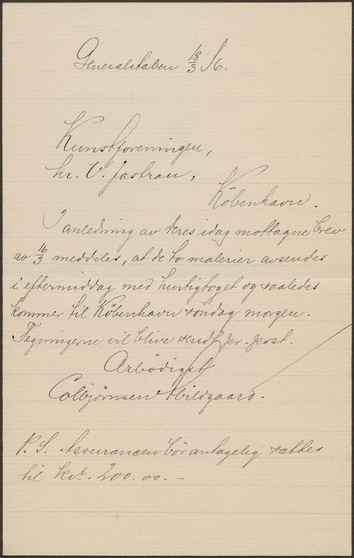 Generalstaben 18/3 16.
Kunstforeningen,
hr. V. Jastrau,
København.
I anledning av Deres idag mottagne brev
av 16/3 meddeles, at de to malerier avsendes
i eftermiddag med hurtigtoget og saaledes
kommer til København søndag morgen.
Tegningerne vil blive sendt pr. post.
Arbødigst
Colbjørnsen Hildgaard.
P.S. Assurancen bør antagelig sættes
til kr. 200.00. -